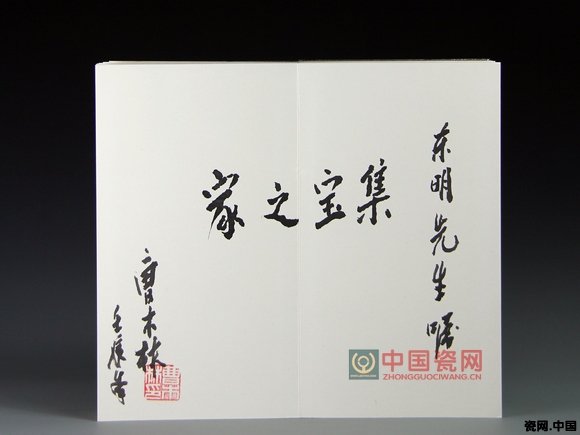 东明先生嘱
集宝之家
曹木林
壬辰年
曹木
林印
中国瓷网
ZHONGGUOCIWANG.CN
瓷网.中国